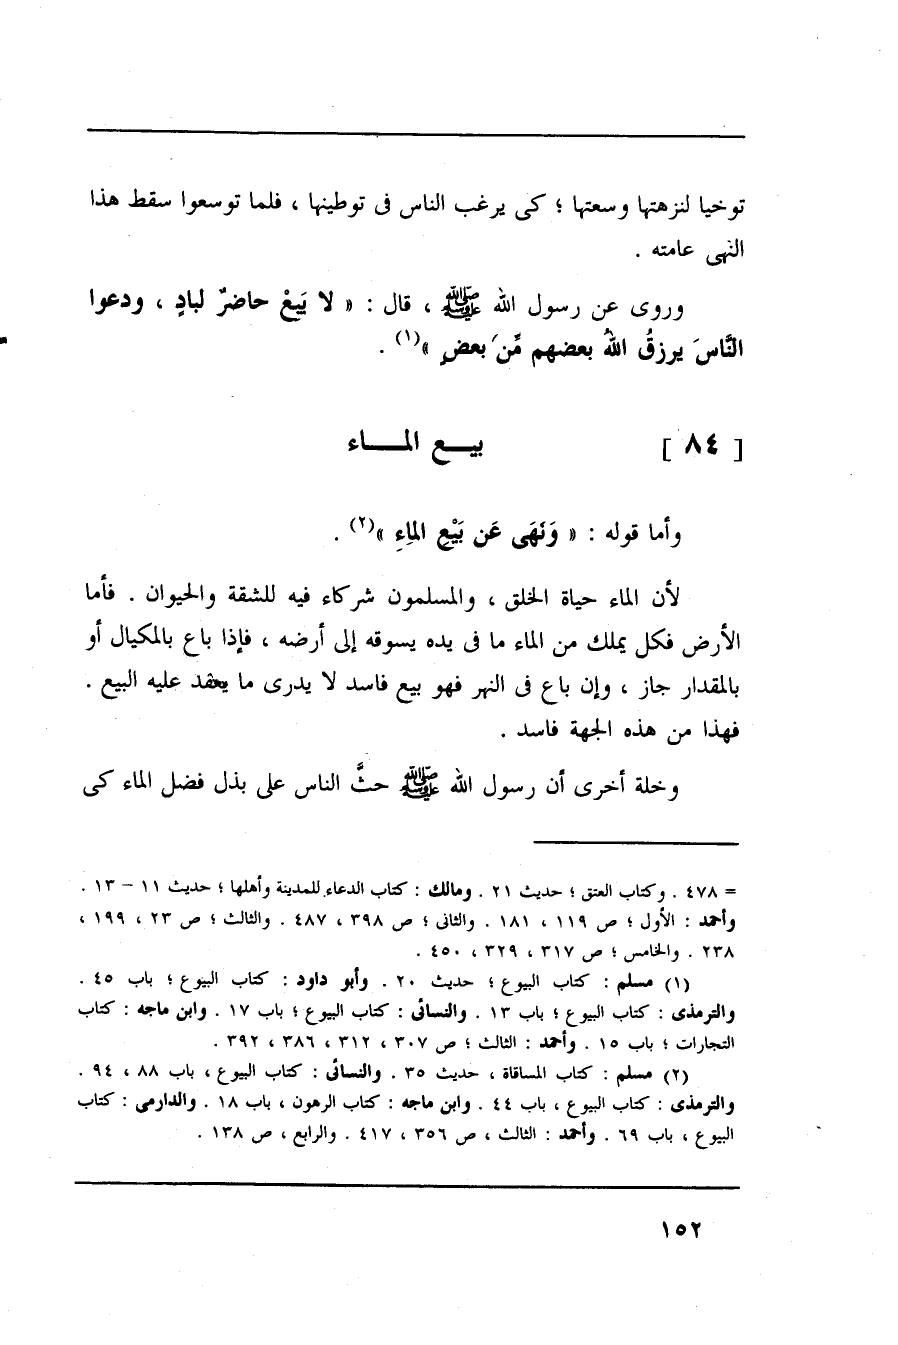 توخيا لنزهتها وسعتها ؛ كى يرغب الناس فى توطينها ، فلما توسعوا سقط هذا
النهى عامته .
وروى عن رسول الله ﷺ ، قال : « لا يَبِعْ حاضرٌ لبادٍ ، ودعوا
النَّاسَ يرزقُ اللهُ بعضهم مِّن بعضٍ »(١) .
[ ٨٤ ] بيـــع المـــاء
وأما قوله : « وَنَهَى عَن بَيْعِ الماءِ »(٢) .
لأن الماء حياة الخلق ، والمسلمون شركاء فيه للشقة والحيوان . فأما
الأرض فكل يملك من الماء ما فى يده يسوقه إلى أرضه ، فإذا باع بالمكيال أو
بالمقدار جاز ، وإن باع فى النهر فهو بيع فاسد لا يدرى ما يعقد عليه البيع .
فهذا من هذه الجهة فاسد .
وخلة أخرى أن رسول الله ﷺ حثَّ الناس على بذل فضل الماء كى
= ٤٧٨ . وكتاب العتق ؛ حديث ٢١ . ومالك : كتاب الدعاء للمدينة وأهلها ؛ حديث ١١ – ١٣ .
وأحمد : الأول ؛ ص ١١٩ ، ١٨١ . والثانى ؛ ص ٣٩٨ ، ٤٨٧ . والثالث ؛ ص ٢٣ ، ١٩٩ ،
٢٣٨ . والخامس ؛ ص ٣١٧ ، ٣٢٩ ، ٤٥٠ .
(١) مسلم : كتاب البيوع ؛ حديث ٢٠ . وأبو داود : كتاب البيوع ؛ باب ٤٥ .
والترمذى : كتاب البيوع ؛ باب ١٣ . والنسائى : كتاب البيوع ؛ باب ١٧ . وابن ماجه : كتاب
التجارات ؛ باب ١٥ . وأحمد : الثالث ؛ ص ٣٠٧ ، ٣١٢ ، ٣٨٦ ، ٣٩٢ .
(٢) مسلم : كتاب المساقاة ، حديث ٣٥ . والنسائى : كتاب البيوع ، باب ٨٨ ، ٩٤ .
والترمذى : كتاب البيوع ، باب ٤٤ . وابن ماجه : كتاب الرهون ، باب ١٨ . والدارمى : كتاب
البيوع ، باب ٦٩ . وأحمد : الثالث ، ص ٣٥٦ ، ٤١٧ . والرابع ، ص ١٣٨ .
١٥٢